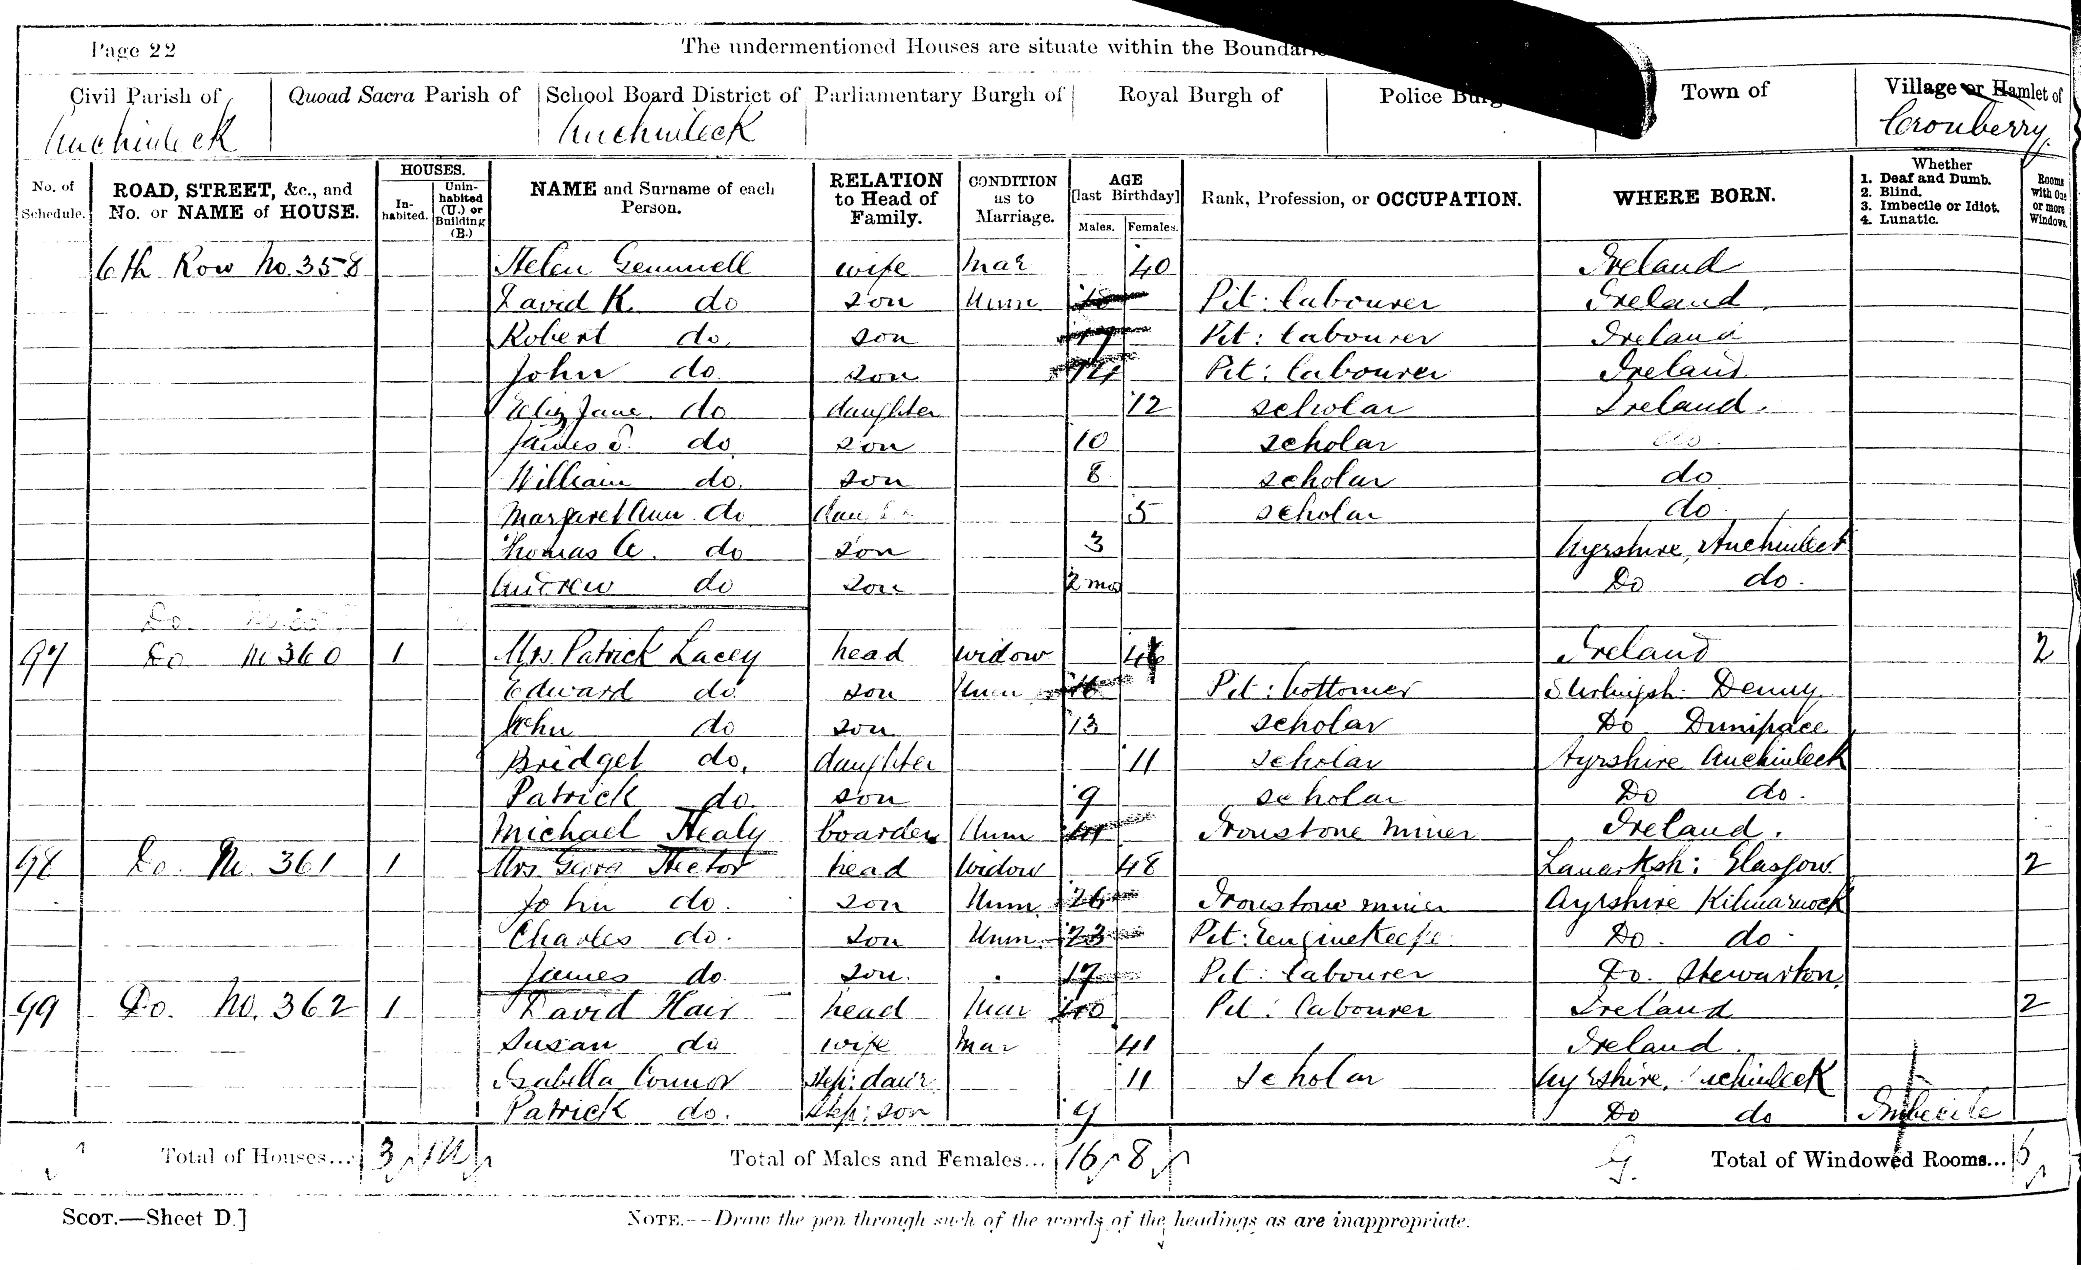 Page 22 The undermentioned Houses are situate within the
Civil Parish of Quoad Sacra Parish of School Board District of Parliamentary Burgh of Royal Burgh of Police Town of Village or Hamlet of
Auchinleck Auchinleck Cronberry
No. of Schedule. ROAD, STREET, &c., and No. or NAME of HOUSE. HOUSES. Inhabited. Uninhabited (U.) or Building (B.) NAME and Surname of each Person. RELATION to Head of Family. CONDITION as to Marriage. AGE [last Birthday] Males. Females. Rank, Profession, or OCCUPATION. WHERE BORN. Whether 1. Deaf and Dumb. 2. Blind. 3. Imbecile or Idiot. 4. Lunatic. Rooms with One or more Windows.
6th Row No. 358 Helen Gemmell wife Mar 40 Ireland
David K. do son Unm Pit: labourer Ireland
Robert do son 17 Pit: labourer Ireland
John do son 14 Pit: labourer Ireland
Eliz Jane do daughter 12 scholar Ireland.
James do son 10 scholar do.
William do. son 8 scholar do
Margaret Ann do 5 scholar do.
Thomas A. do son 3 Ayrshire, Auchinleck
Andrew do son 2 mo Do do.
Do
97 Do No 360 1 Mrs Patrick Lacey head widow Ireland 2
Edward do son Unm 16 Pit: bottomer Denny
John do son 13 scholar Do Dunipace
Bridget do. daughter 11 scholar Ayrshire Auchinleck
Patrick do. son 9 scholar Do do.
Michael Healy boarder Unm 41 Ironstone miner Ireland.
98 Do. No. 361 1 Mrs Hector head widow 48 Lanarksh: Glasgow 2
John do. son Unm 26 Ironstone miner Ayrshire Kilmarnock
Charles do. son Unm 23 Pit: Do. do.
James do. son. 17 Pit: labourer Do. Stewarton
99 Do. No. 362 1 David Hair head Mar 40 Pit: labourer Ireland 2
Susan do wife Mar 41 Ireland.
Isabella Connor step: daur 11 scholar Ayrshire, Auchinleck
Patrick do. step: son 9 Do do Imbecile
Total of Houses... 3 Total of Males and Females... 16 8 G. Total of Windowed Rooms... 6
SCOT.—Sheet D.] NOTE.—Draw the pen through such of the words of the headings as are inappropriate.